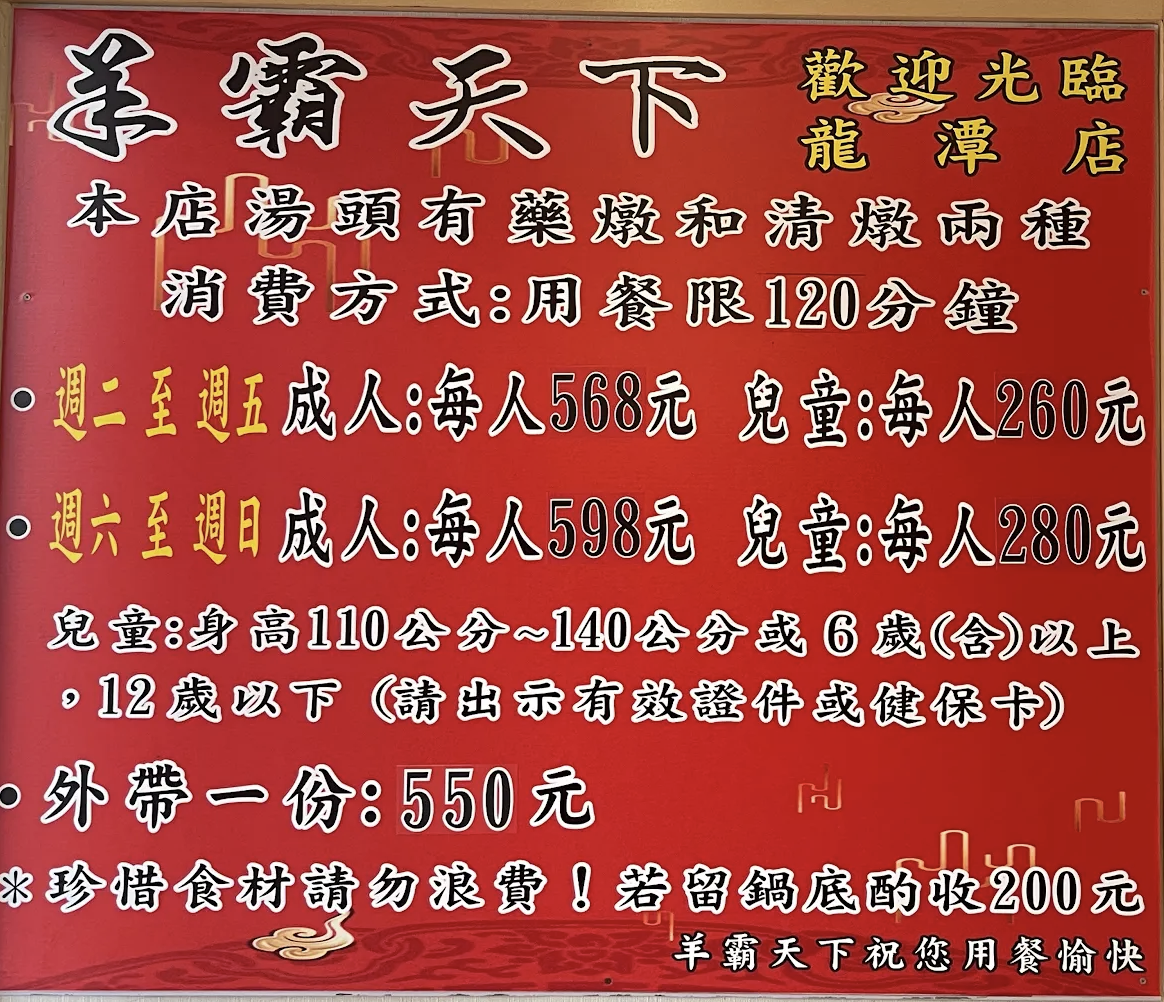 羊霸天下
歡迎光臨
龍潭店
本店湯頭有藥燉和清燉兩種
消費方式:用餐限120分鐘
•週二至週五成人:每人568元 兒童:每人260元
•週六至週日成人:每人598元 兒童:每人280元
兒童:身高110公分~140公分或6歲(含)以上
，12歲以下(請出示有效證件或健保卡)
•外帶一份:550元
*珍惜食材請勿浪費！若留鍋底酌收200元
羊霸天下祝您用餐愉快